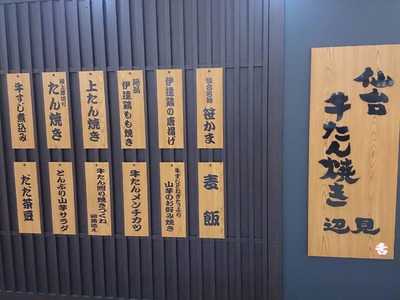 仙台
牛たん焼き
辺見
仙台名物
笹かま
伊達鶏の唐揚げ
絶品
伊達鶏もも焼き
上たん焼き
極上厚切り
たん焼き
牛すじ煮込み
麦飯
牛すじとねぎたっぷり
山芋のお好み焼き
牛たんメンチカツ
牛たん照り焼きつくね
卵黄添え
とんぶり山芋サラダ
だだ茶豆